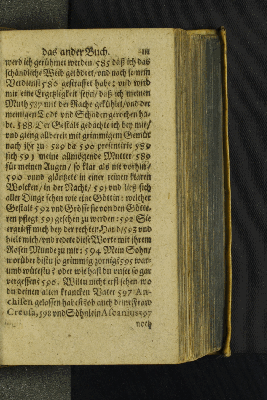 das ander Buch. 111
werd ich gerühmet werden / 585 daß ich das
schändliche Weib getödtet / und nach ihrem
Verdienst 586 gestraffet habe; und wird
mir eine Ergetzligkeit seyn / daß ich meinen
Muth 587 mit der Rache gekühlet / und der
meinigen Todt und Schaden gerochen ha-
be. 588 Der Gestalt gedachte ich bey mir /
und gieng allbereit mit grimmigem Gemüt
nach ihr zu: 529 da præsentirte 588
sich 591 meine allmögende Mutter 589
für meinen Augen / so klar als nie vorhin /
590 und gläntzete in einer reinen klaren
Wolcken / in der Nacht / 591 und ließ sich
aller Dinge sehen wie eine Göttin: welcher
Gestalt 592 und Grösse sie von den Götte-
ren pflegt 593 gesehen zu werden: 590 Sie
ergrieff mich bey der rechten Hand / 593 und
hielt mich / und redete diese Worte mit ihrem
Rosen Munde zu mir: 594 Mein Sohn /
worüber bistu so grimmig zornig 595 war-
umb wütestu? oder wie hast du unser so gar
vergessen? 596 Wiltu nicht erst sehen wo
du deinen alten krancken Vater 597 An-
chisen gelassen habest / ob auch deine Fraw
Creusa, 598 und Söhnlein Ascanius 597
noch